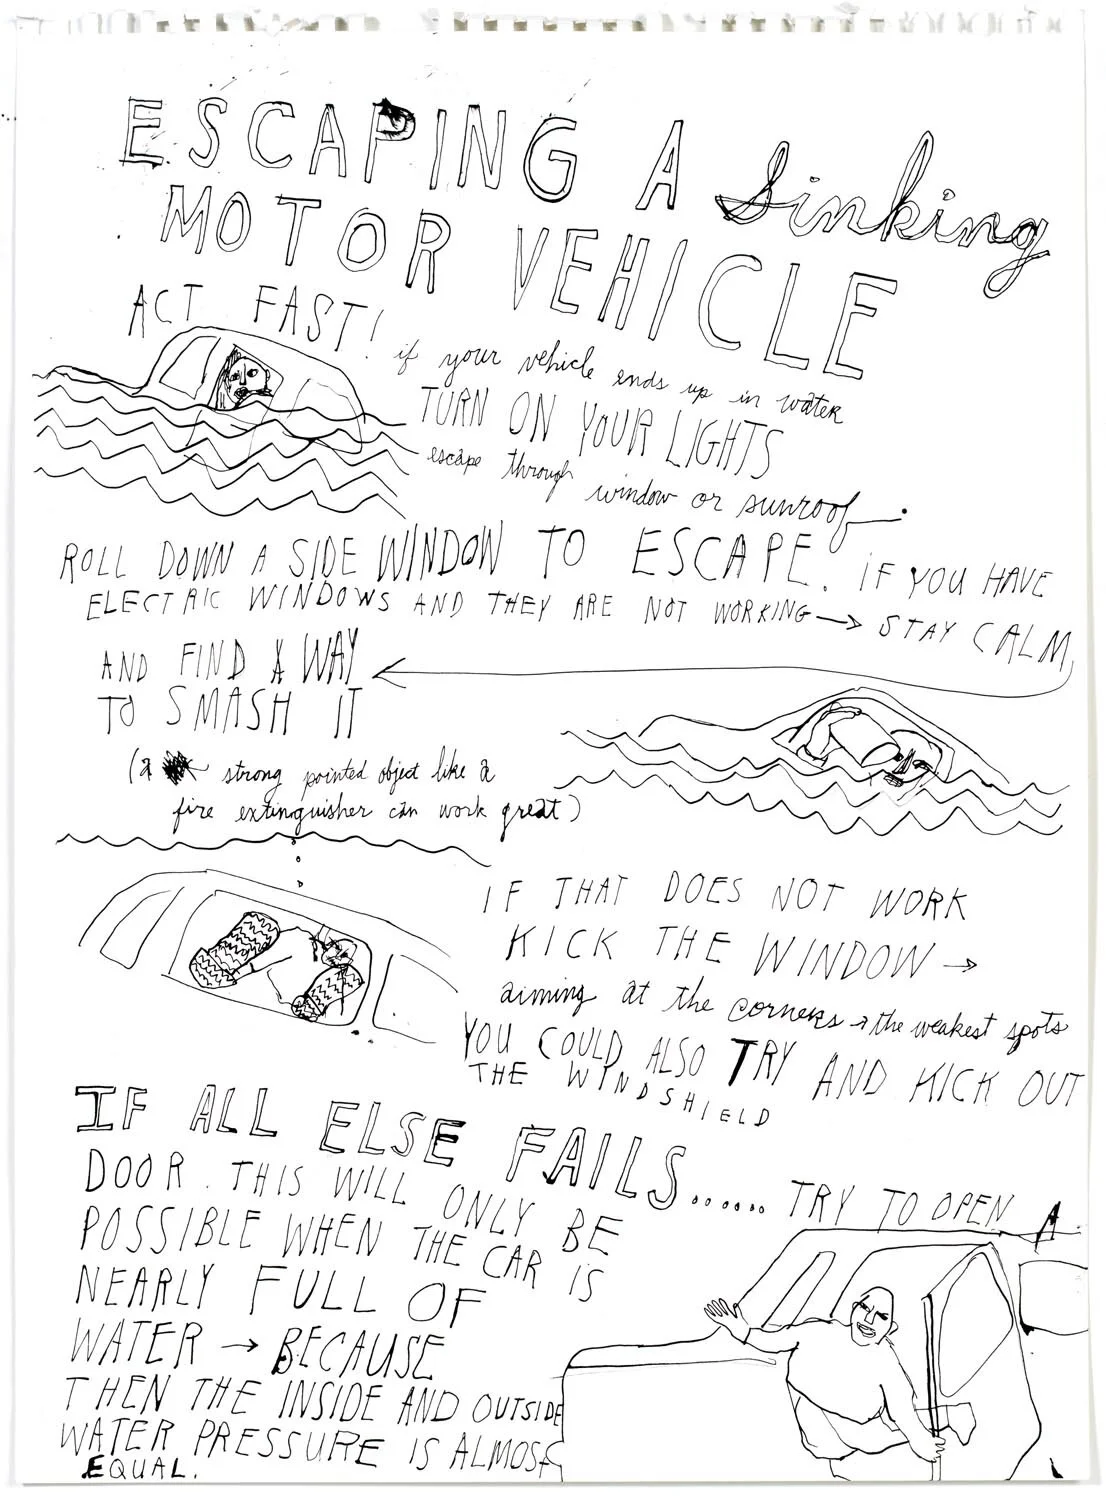 ESCAPING A Sinking
MOTOR VEHICLE
ACT FAST!
if your vehicle ends up in water
TURN ON YOUR LIGHTS
escape through window or sunroof.
ROLL DOWN A SIDE WINDOW TO ESCAPE. IF YOU HAVE
ELECTRIC WINDOWS AND THEY ARE NOT WORKING → STAY CALM,
AND FIND A WAY
TO SMASH IT
(a strong pointed object like a
fire extinguisher can work great)
IF THAT DOES NOT WORK
KICK THE WINDOW →
aiming at the corners → the weakest spots
YOU COULD ALSO TRY AND KICK OUT
THE WINDSHIELD
IF ALL ELSE FAILS...... TRY TO OPEN A
DOOR. THIS WILL ONLY BE
POSSIBLE WHEN THE CAR IS
NEARLY FULL OF
WATER → BECAUSE
THEN THE INSIDE AND OUTSIDE
WATER PRESSURE IS ALMOST
EQUAL.